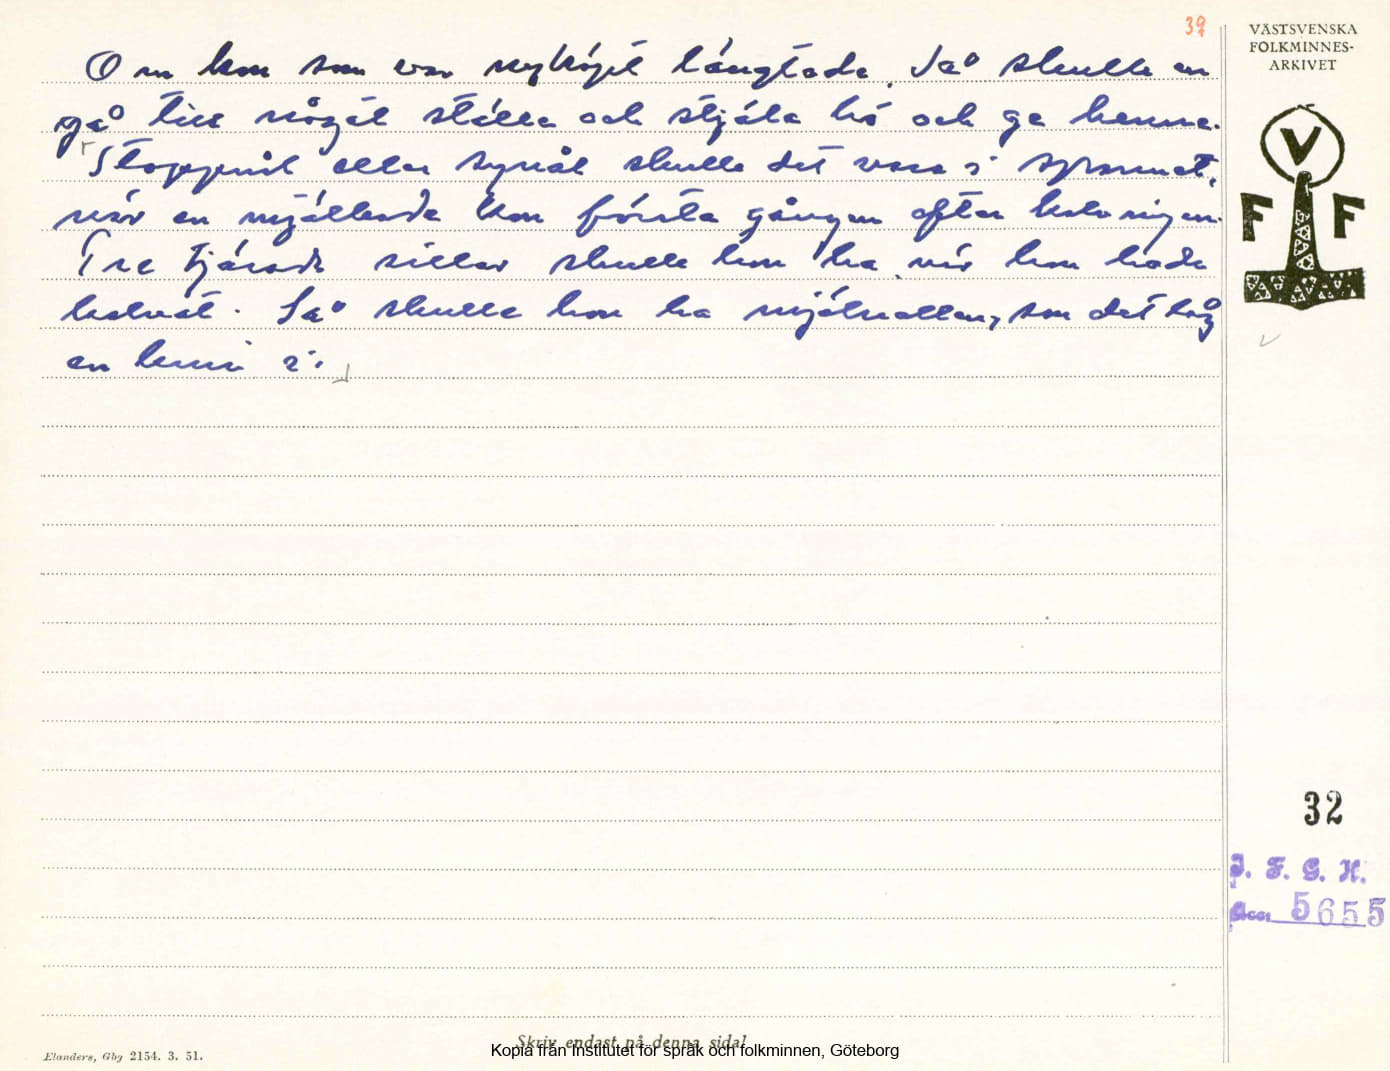 39
VÄSTSVENSKA
FOLKMINNES-
ARKIVET
Om kon som var nyköpt längtade, då skulle en
gå till något ställe och stjäla hö och ge henne.
Stoppnål eller synål skulle det vara i spannet,
när en mjölkade kon första gången efter kalvningen.
Tre tjärade sillar skulle hon ha, när hon hade
kalvat. Så skulle hon ha mjölnellen, som det låg
en i.
V
F F
32
I. F. G. H.
Acc. 5655
Skriv endast på denna sida!
Kopia från Institutet för språk och folkminnen, Göteborg
Elanders, Gbg 2154. 3. 51.